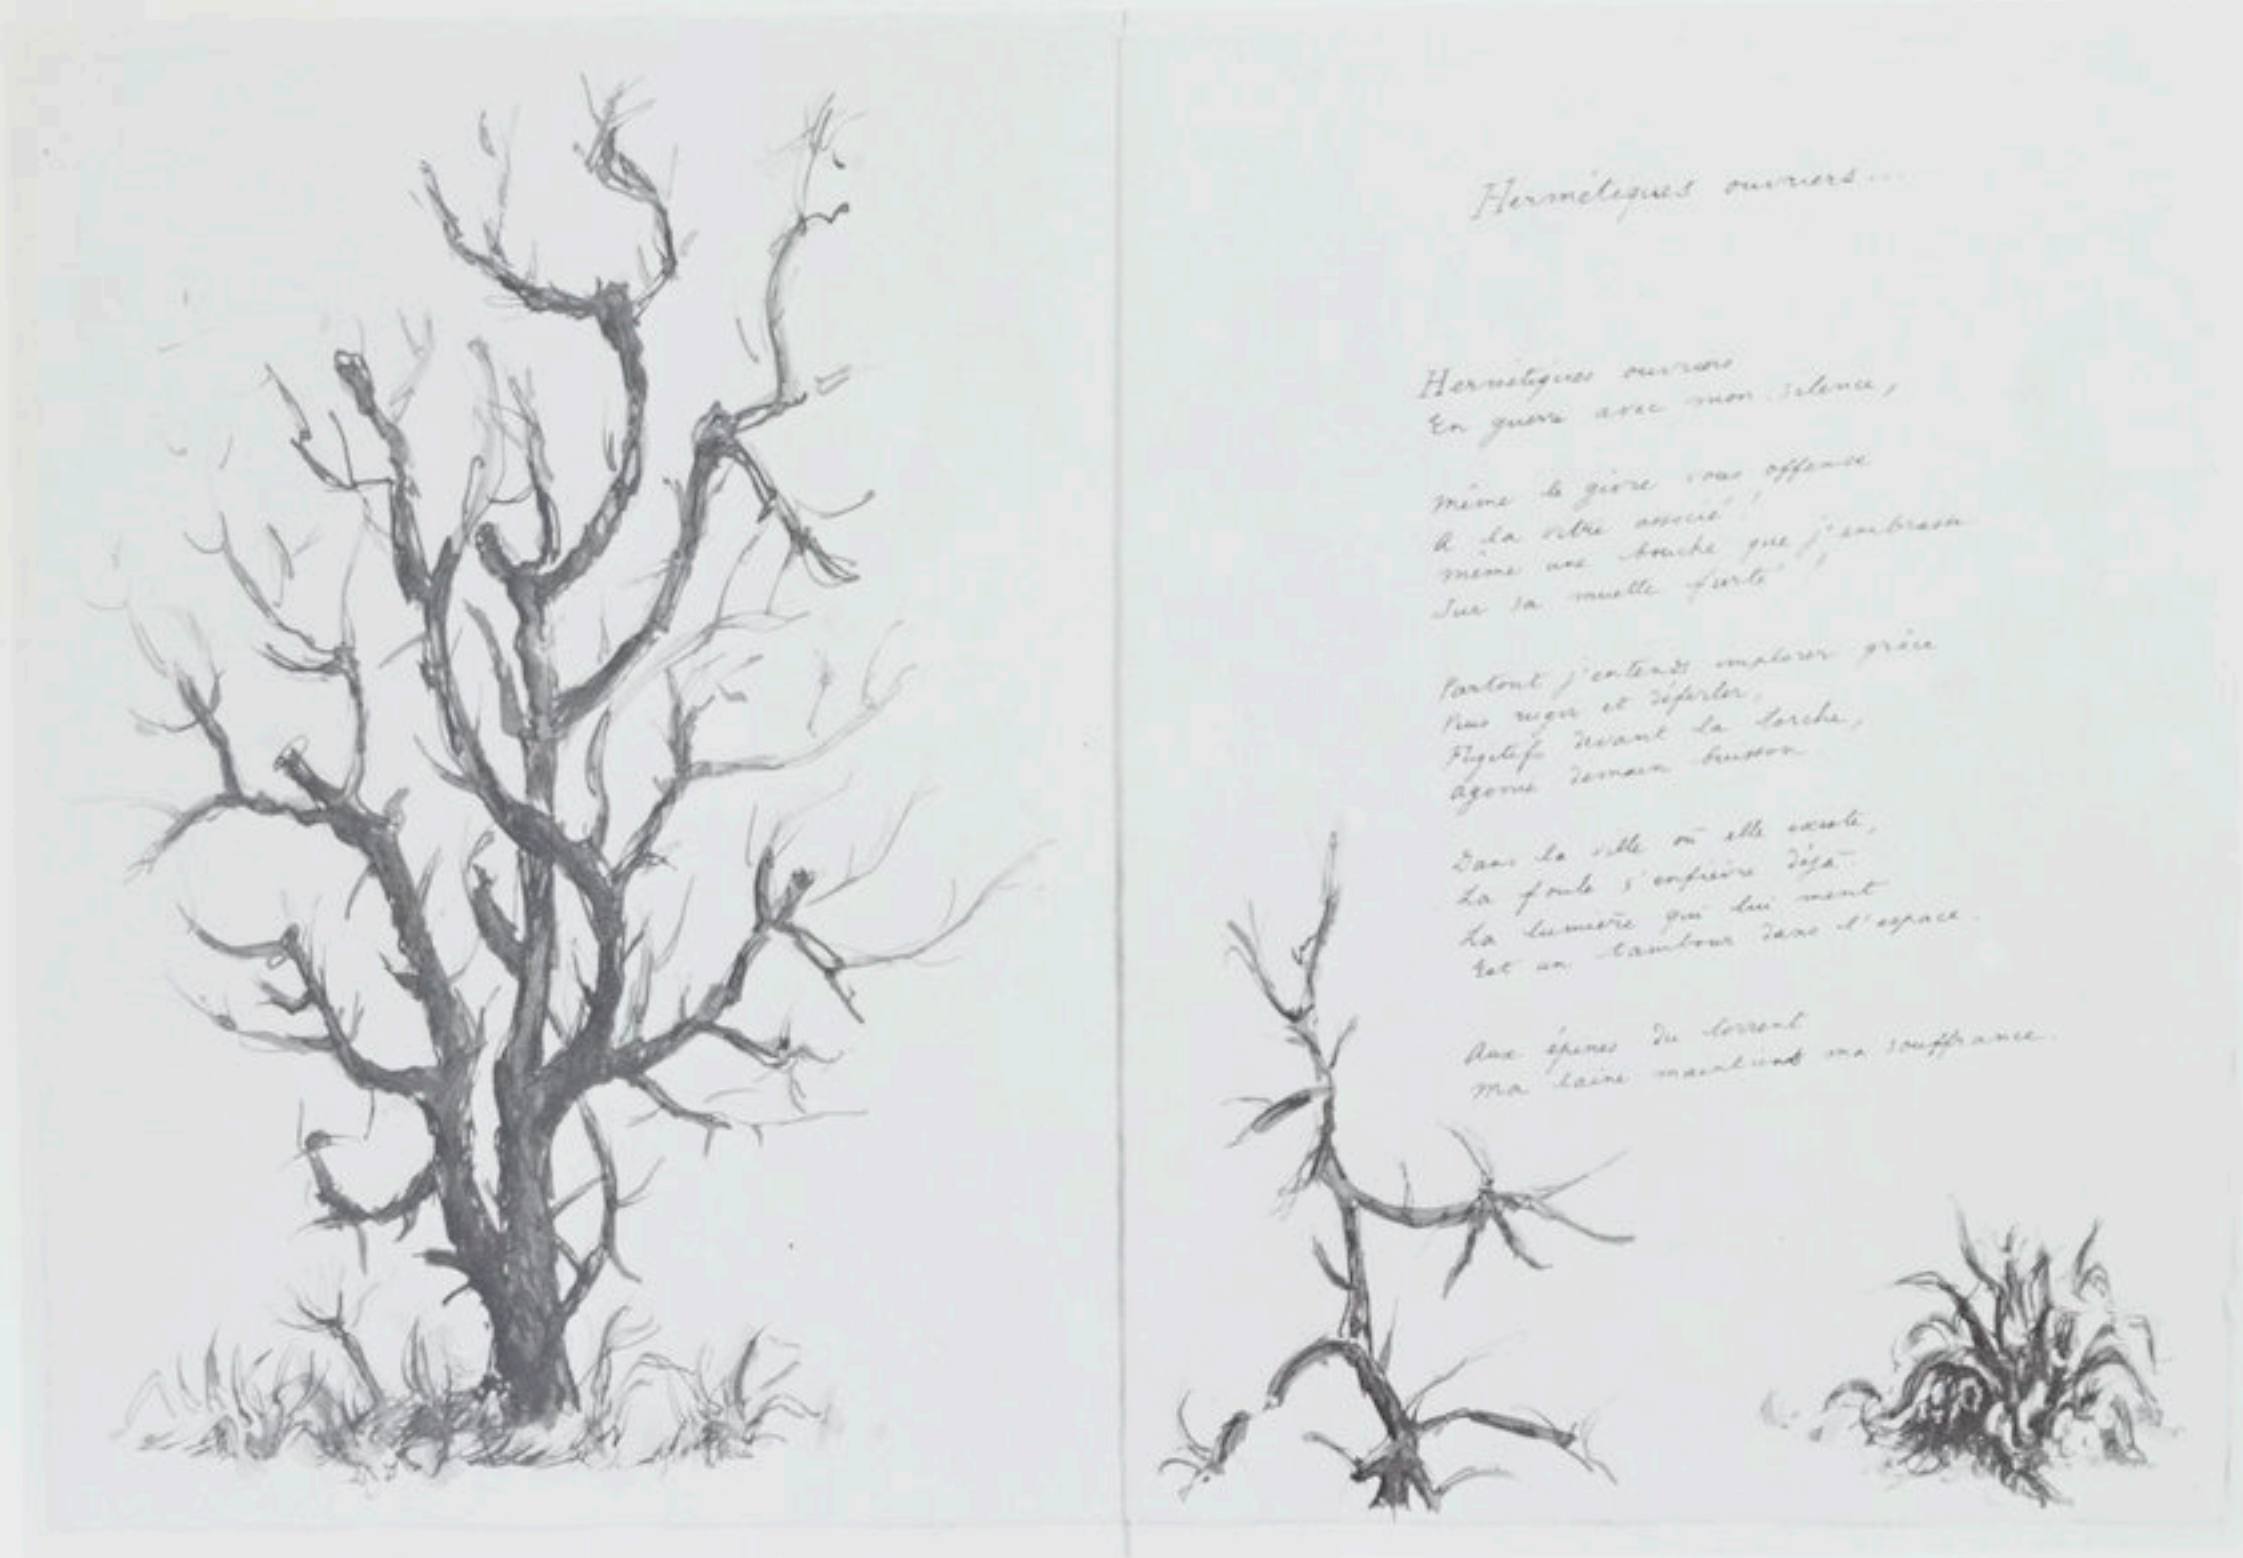 Hermétiques ouvriers...
Hermétiques ouvriers
En guerre avec mon silence,
Même le givre vous offense
A la vitre associé !
Même une bouche que j'embrasse
Sur sa muette fierté !
Partout j'entends implorer grâce
Puis rugir et déferler,
Fugitifs devant la torche,
Agonie demain buisson.
Dans la ville où elle existe,
La foule s'enfièvre déjà.
La lumière qui lui ment
Est un tambour dans l'espace.
Aux épines du torrent
Ma laine maintient ma souffrance.